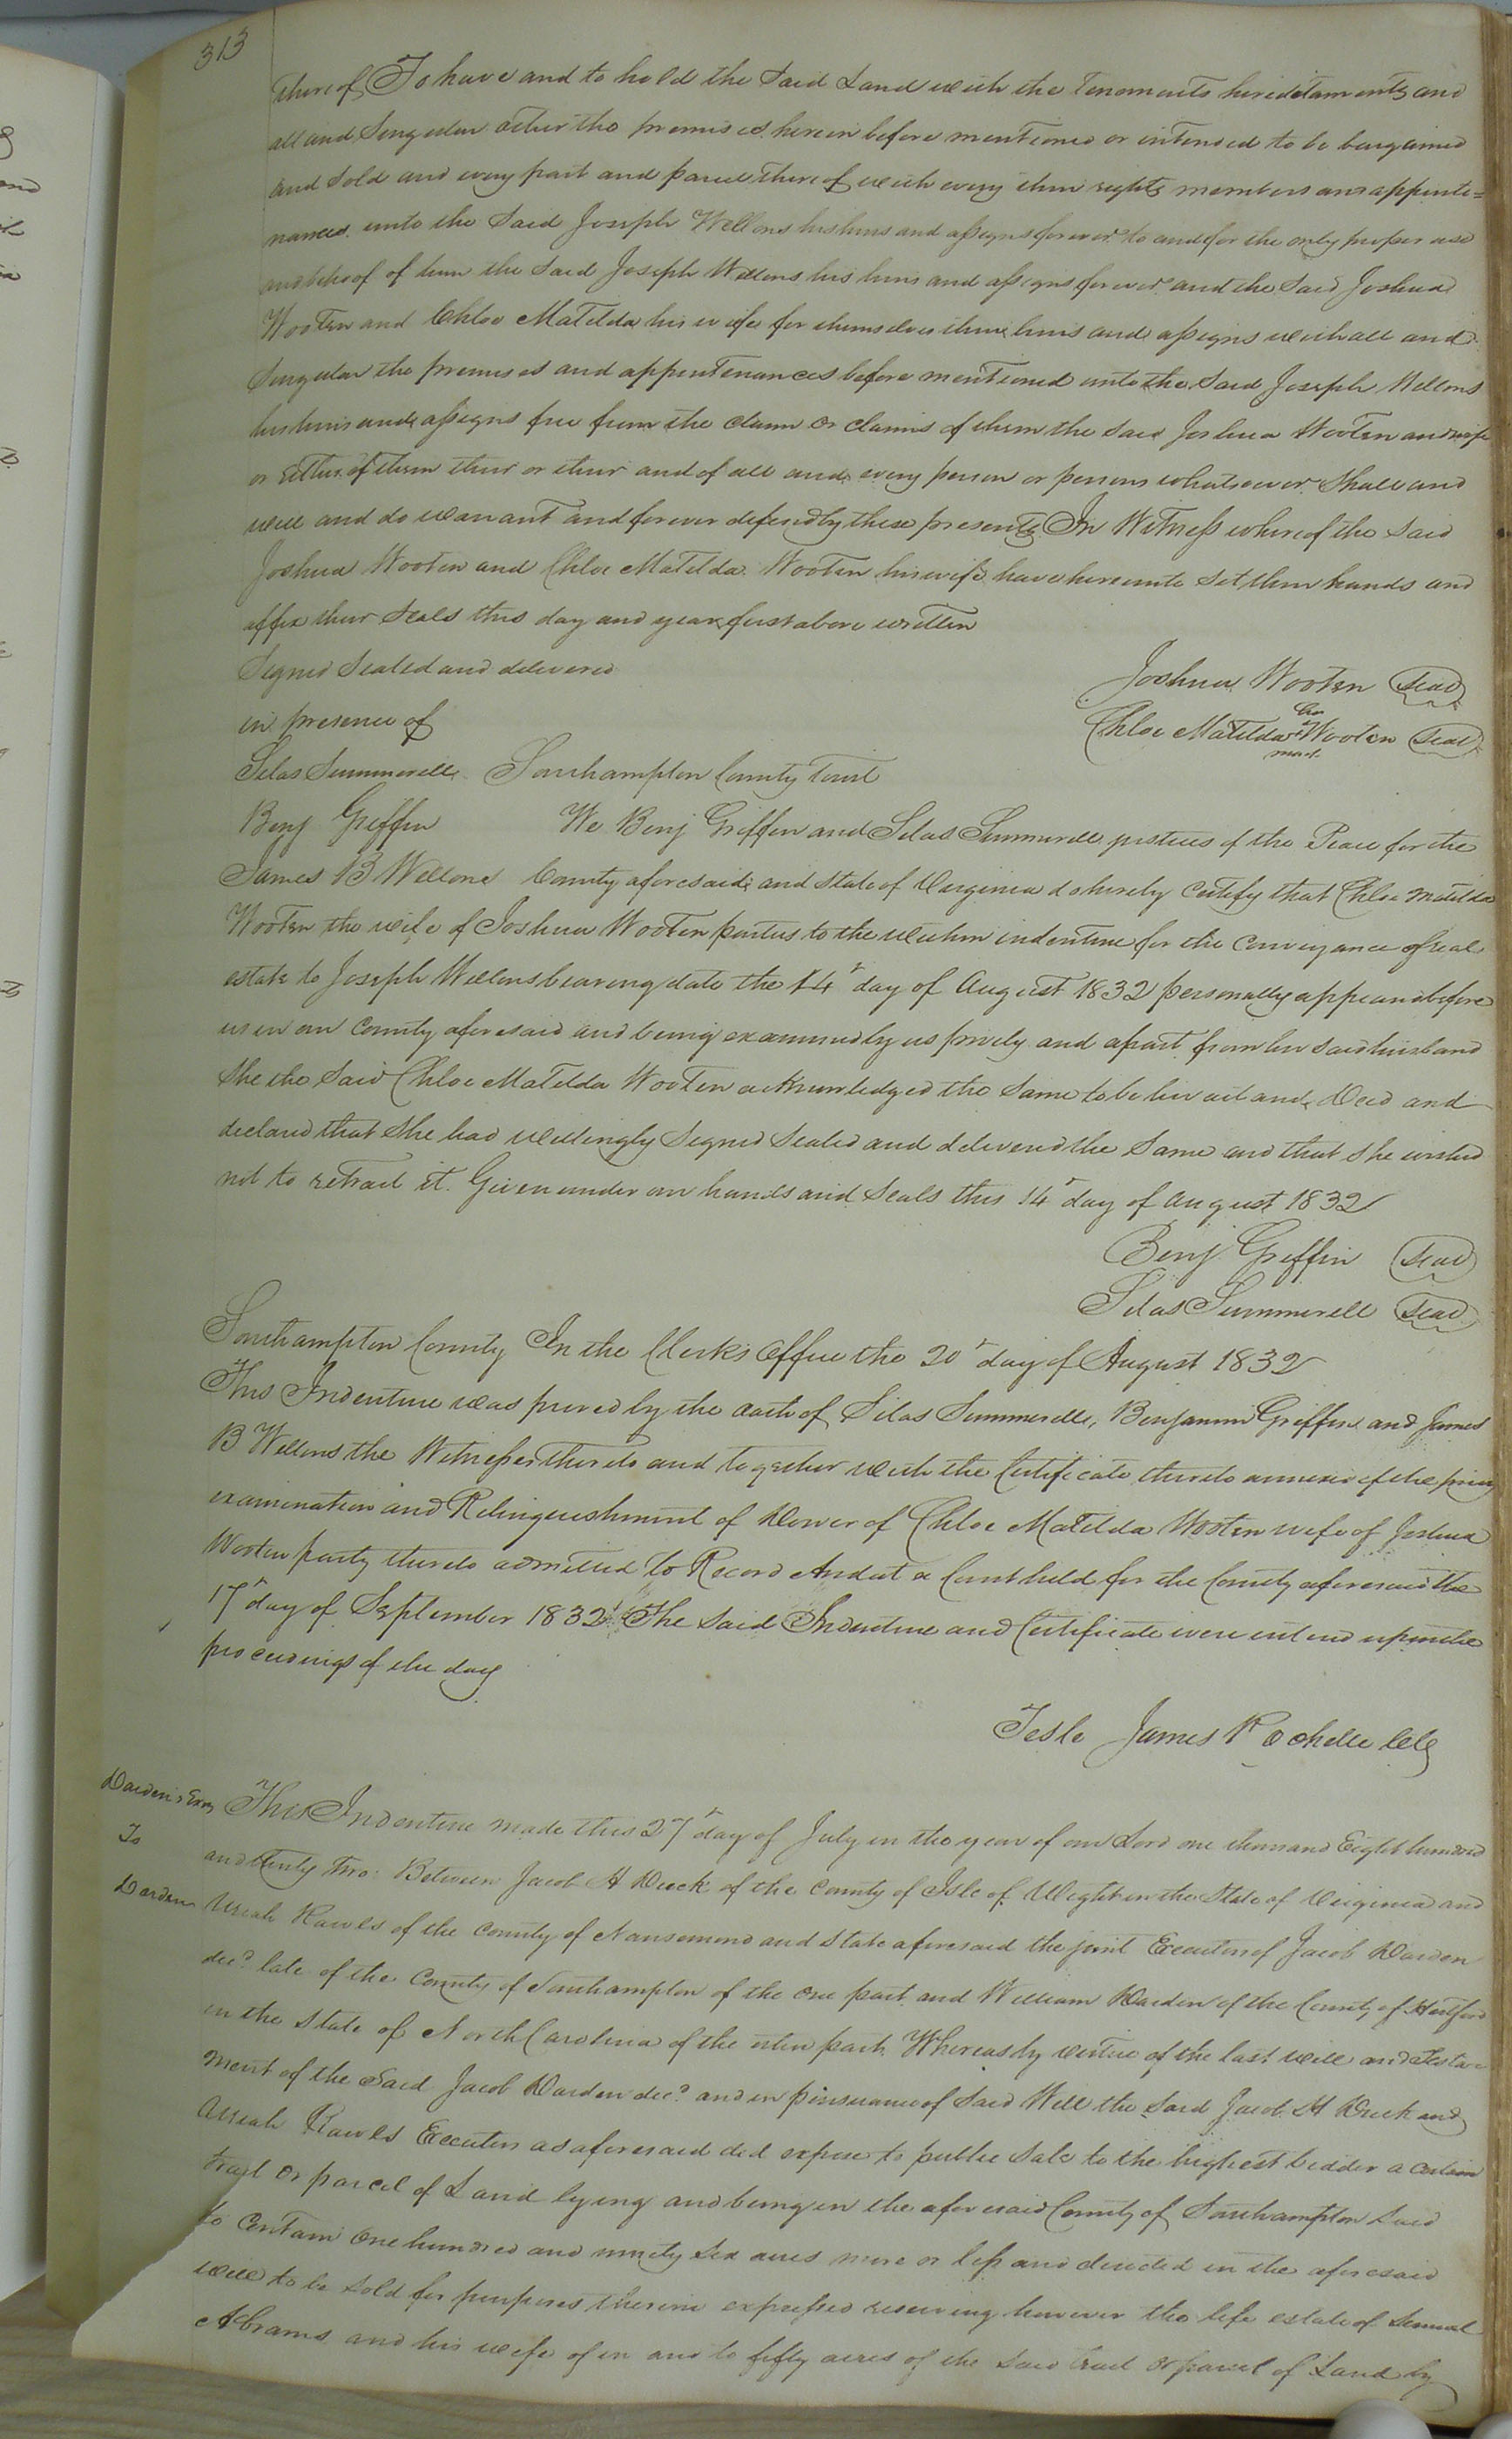 313
thereof To have and to hold the Said Land with the Tenements heriditaments and
all and Singular other the premises herein before mentioned or intended to be bargained
and Sold and every part and parcel thereof with every their rights members and appurte=
nances unto the Said Joseph Wellons his heirs and assigns forever to and for the only proper use
and behoof of him the Said Joseph Wellons his heirs and assigns forever and the Said Joshua
Wooten and Chloe Matilda his wife for themselves their heirs and assigns with all and
Singular the premises and appurtenances before mentioned unto the Said Joseph Wellons
his heirs and assigns free from the claim or claims of them the said Joshua Wooten and wife
or Either of them their or their and of all and every person or persons whatsoever Shall and
will and do warrant and forever defend by these presents In Witness whereof the Said
Joshua Wooten and Chloe Matilda Wooten his wife have hereunto Set their hands and
affix their Seals this day and year first above written
Signed Sealed and delivered
in presence of
Joshua Wooten Seal
Chloe Matilda her X mark Wooten Seal
Silas Summerell Southampton County Court
Benj Griffin We Benj Griffin and Silas Summerell justices of the Peace for the
James B Wellons County aforesaid and State of Virginia do hereby Certify that Chloe Matilda
Wooten the wife of Joshua Wooten parties to the within indenture for the Conveyance of real
estate to Joseph Wellons bearing date the 14th day of August 1832 personally appeared before
us in our County aforesaid and being examined by us privily and apart from her said husband
She the Said Chloe Matilda Wooten acknowledged the Same to be her act and Deed and
declared that She had willingly Signed Sealed and delivered the Same and that She wished
not to retract it. Given under our hands and Seals this 14th day of August 1832
Benj Griffin Seal
Silas Summerell Seal
Southampton County In the Clerks Office the 20th day of August 1832
This Indenture was proved by the oath of Silas Summerell, Benjamin Griffin and James
B Wellons the Witnesses thereto and together with the Certificate thereto annexed of the privy
examination and Relinquishment of Dower of Chloe Matilda Wooten wife of Joshua
Wooten party thereto admitted to Record And at a Court held for the County aforesaid the
17th day of September 1832 The Said Indenture and Certificate were entered upon the
proceedings of the day
Teste James Rochelle Clk
Darden's Exrs
To
Darden
This Indenture made this 27th day of July in the year of our Lord one thousand Eight hundred
and thirty two Between Jacob H Duck of the County of Isle of Wight in the State of Virginia and
Uriah Rawls of the County of Nansemond and State aforesaid the joint Executors of Jacob Darden
decd late of the County of Southampton of the one part and William Darden of the County of Hertford
in the State of North Carolina of the other part Whereas by virtue of the last will and Testa=
ment of the Said Jacob Darden decd and in pursuance of Said Will the Said Jacob H Duck and
Uriah Rawls Executors as aforesaid did expose to public Sale to the highest bidder a certain
tract or parcel of Land lying and being in the aforesaid County of Southampton Said
to Contain One hundred and ninety Six acres more or less and directed in the aforesaid
will to be Sold for purposes therein expressed reserving however the life estate of
Abrams and his wife of in and to fifty acres of the Said tract or parcel of Land by